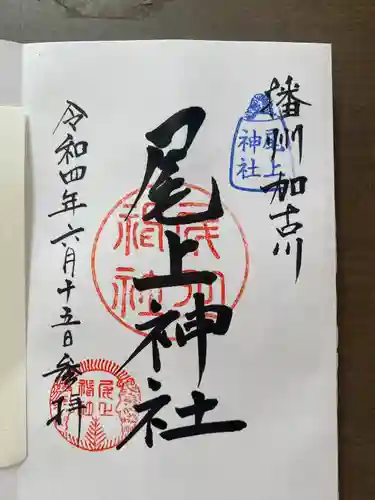 播州加古川
尾上
神社
尾上神社
令和四年六月十五日参拝